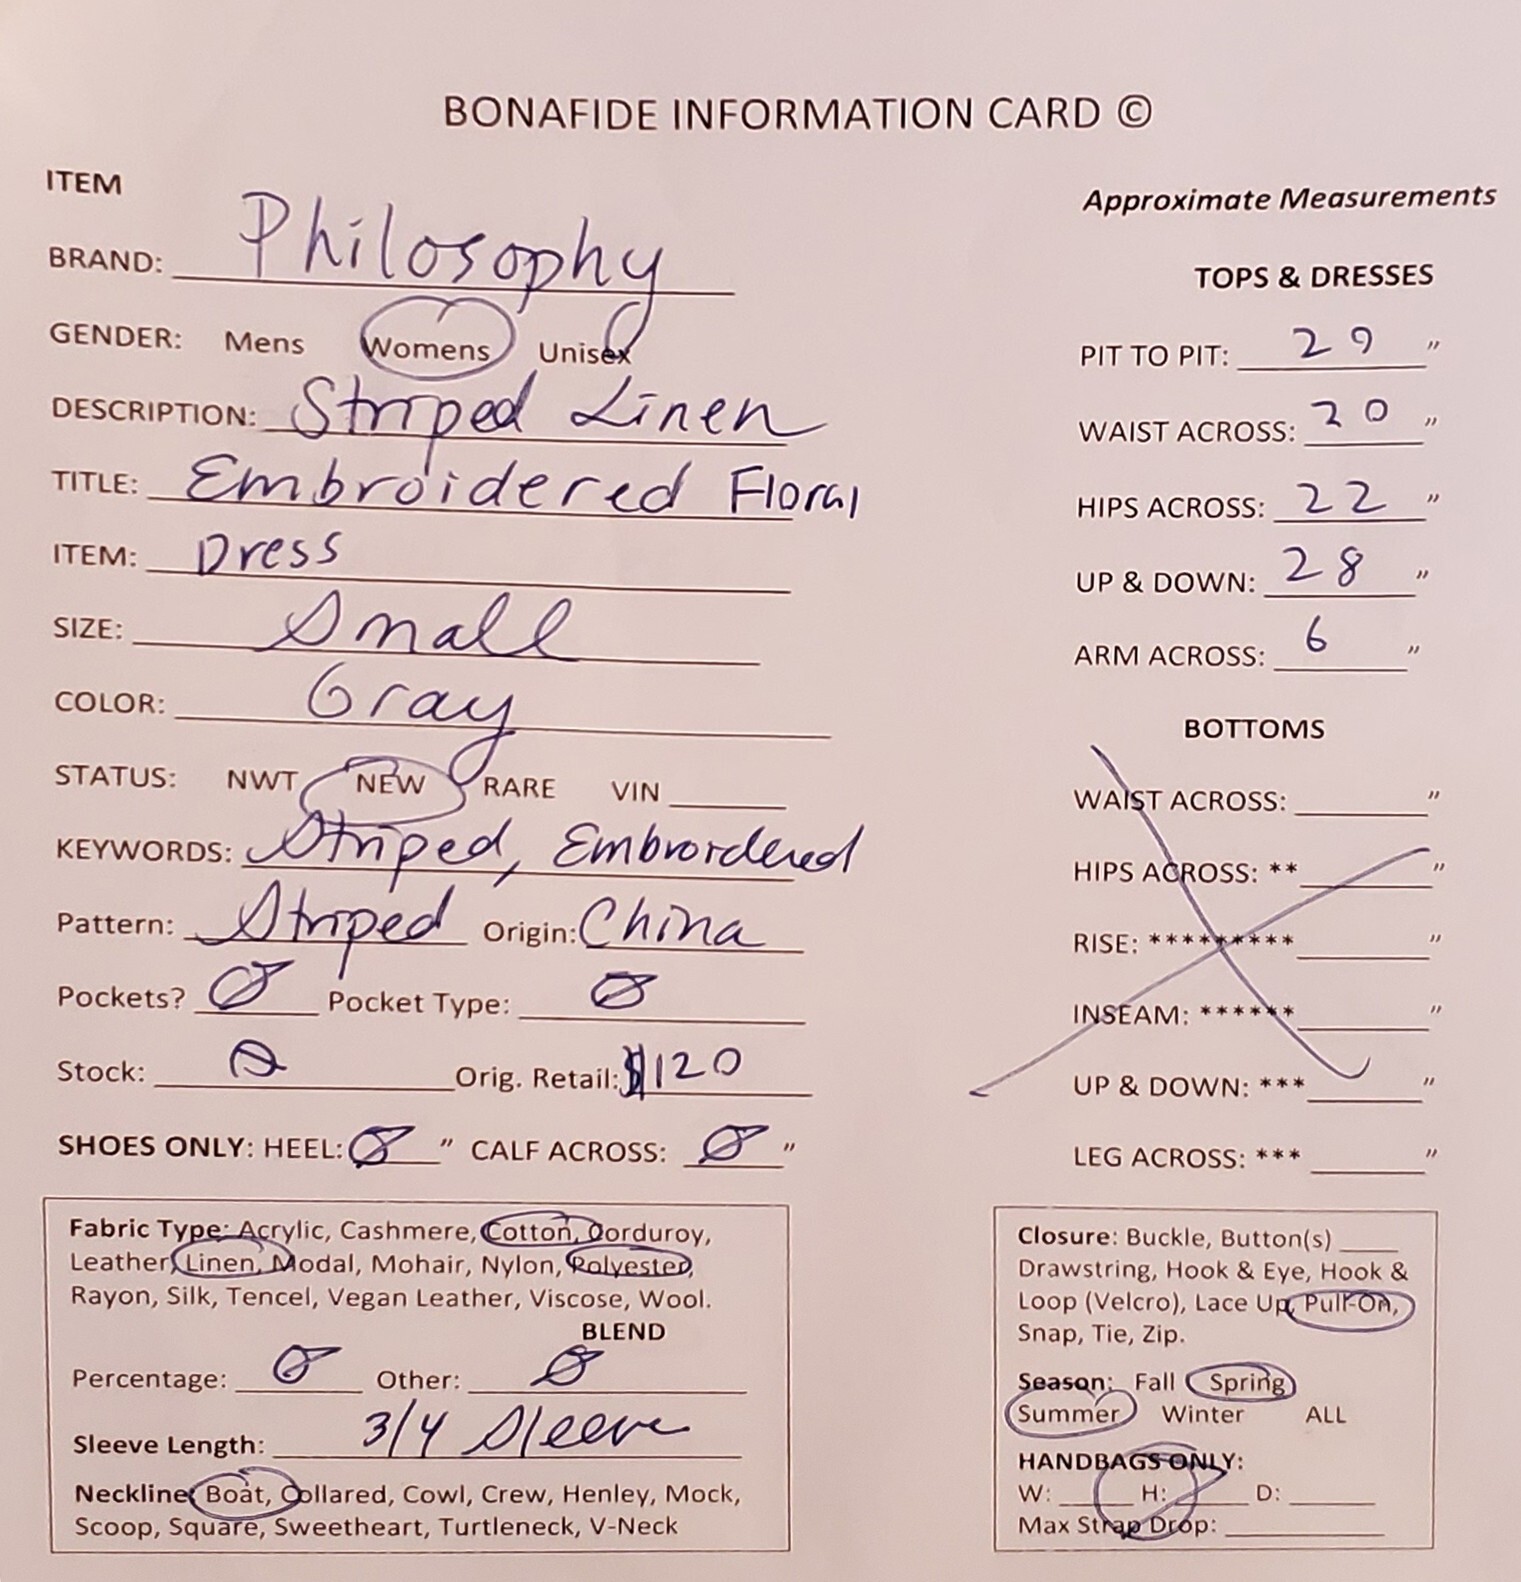 BONAFIDE INFORMATION CARD ©
ITEM
BRAND: Philosophy
GENDER: Mens Womens Unisex
DESCRIPTION: Striped Linen
TITLE: Embroidered Floral
ITEM: Dress
SIZE: Small
COLOR: Gray
STATUS: NWT NEW RARE VIN
KEYWORDS: Striped, Embroidered
Pattern: Striped Origin: China
Pockets? Ø Pocket Type: Ø
Stock: Ø Orig. Retail: $120
SHOES ONLY: HEEL: Ø " CALF ACROSS: Ø "
Fabric Type: Acrylic, Cashmere, Cotton, Corduroy,
Leather, Linen, Modal, Mohair, Nylon, Polyester,
Rayon, Silk, Tencel, Vegan Leather, Viscose, Wool.
BLEND
Percentage: Ø Other: Ø
Sleeve Length: 3/4 Sleeve
Neckline: Boat, Collared, Cowl, Crew, Henley, Mock,
Scoop, Square, Sweetheart, Turtleneck, V-Neck
Approximate Measurements
TOPS & DRESSES
PIT TO PIT: 29 "
WAIST ACROSS: 20 "
HIPS ACROSS: 22 "
UP & DOWN: 28 "
ARM ACROSS: 6 "
BOTTOMS
WAIST ACROSS: "
HIPS ACROSS: ** "
RISE: ********* "
INSEAM: ****** "
UP & DOWN: *** "
LEG ACROSS: *** "
Closure: Buckle, Button(s)
Drawstring, Hook & Eye, Hook &
Loop (Velcro), Lace Up, Pull-On,
Snap, Tie, Zip.
Season: Fall Spring
Summer Winter ALL
HANDBAGS ONLY:
W: H: D:
Max Strap Drop: